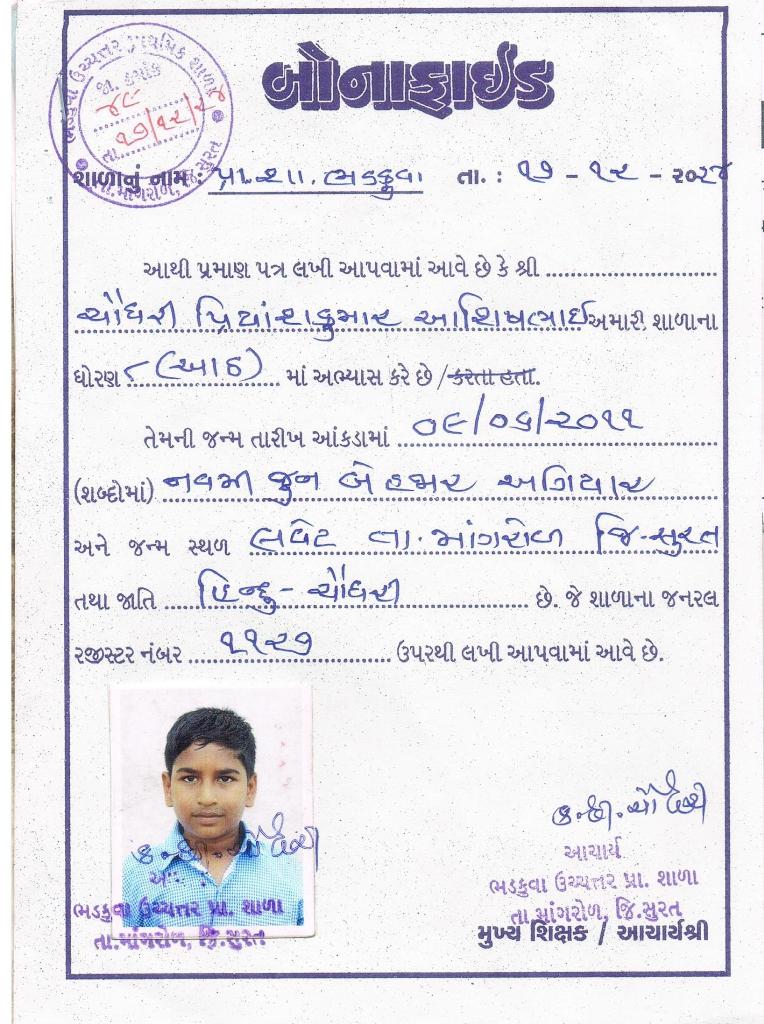 ભડકુવા ઉચ્ચત્તર પ્રાથમિક શાળા
જા. ક્રમાંક
૪૯
તા. ૧૭/૧૨/૨૪
તા.માંગરોળ, જિ.સુરત
બોનાફાઇડ
શાળાનું નામ : પ્રા.શા. ભડકુવા તા. : ૧૭ - ૧૨ - ૨૦૨૪
આથી પ્રમાણ પત્ર લખી આપવામાં આવે છે કે શ્રી
ચૌધરી પ્રિયાંશકુમાર આશિષભાઈ અમારી શાળાના
ધોરણ ૮ (આઠ) માં અભ્યાસ કરે છે / કરતા હતા.
તેમની જન્મ તારીખ આંકડામાં ૦૯/૦૬/૨૦૧૧
(શબ્દોમાં) નવમી જુન બે હજાર અગિયાર
અને જન્મ સ્થળ લવેટ તા. માંગરોળ જિ. સુરત
તથા જાતિ હિન્દુ - ચૌધરી છે. જે શાળાના જનરલ
રજીસ્ટર નંબર ૧૧૨૭ ઉપરથી લખી આપવામાં આવે છે.
આચાર્ય
ભડકુવા ઉચ્ચત્તર પ્રા. શાળા
તા.માંગરોળ, જિ.સુરત
ભડકુવા ઉચ્ચત્તર પ્રા. શાળા
તા.માંગરોળ, જિ.સુરત
મુખ્ય શિક્ષક / આચાર્યશ્રી